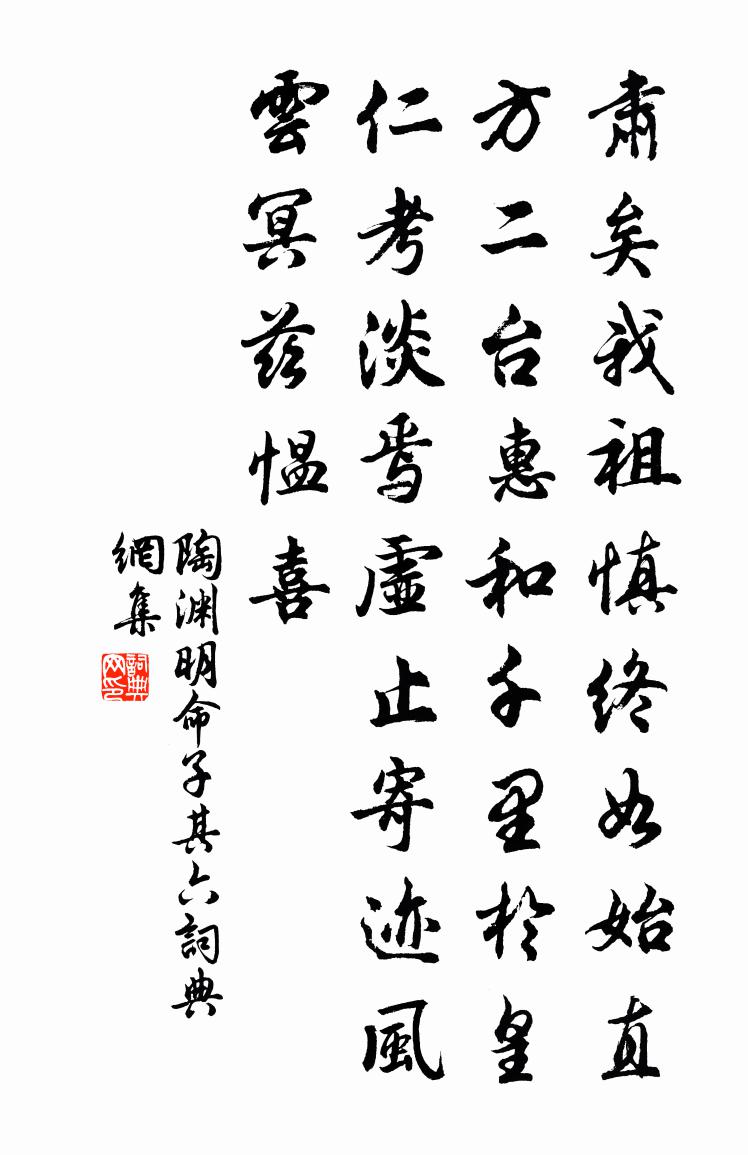 肅矣我祖慎終如始直
方二台惠和千里於皇
仁考淡焉虛止寄迹風
雲冥茲慍喜
陶渊明命子其六詞典
網集
詞典
网印